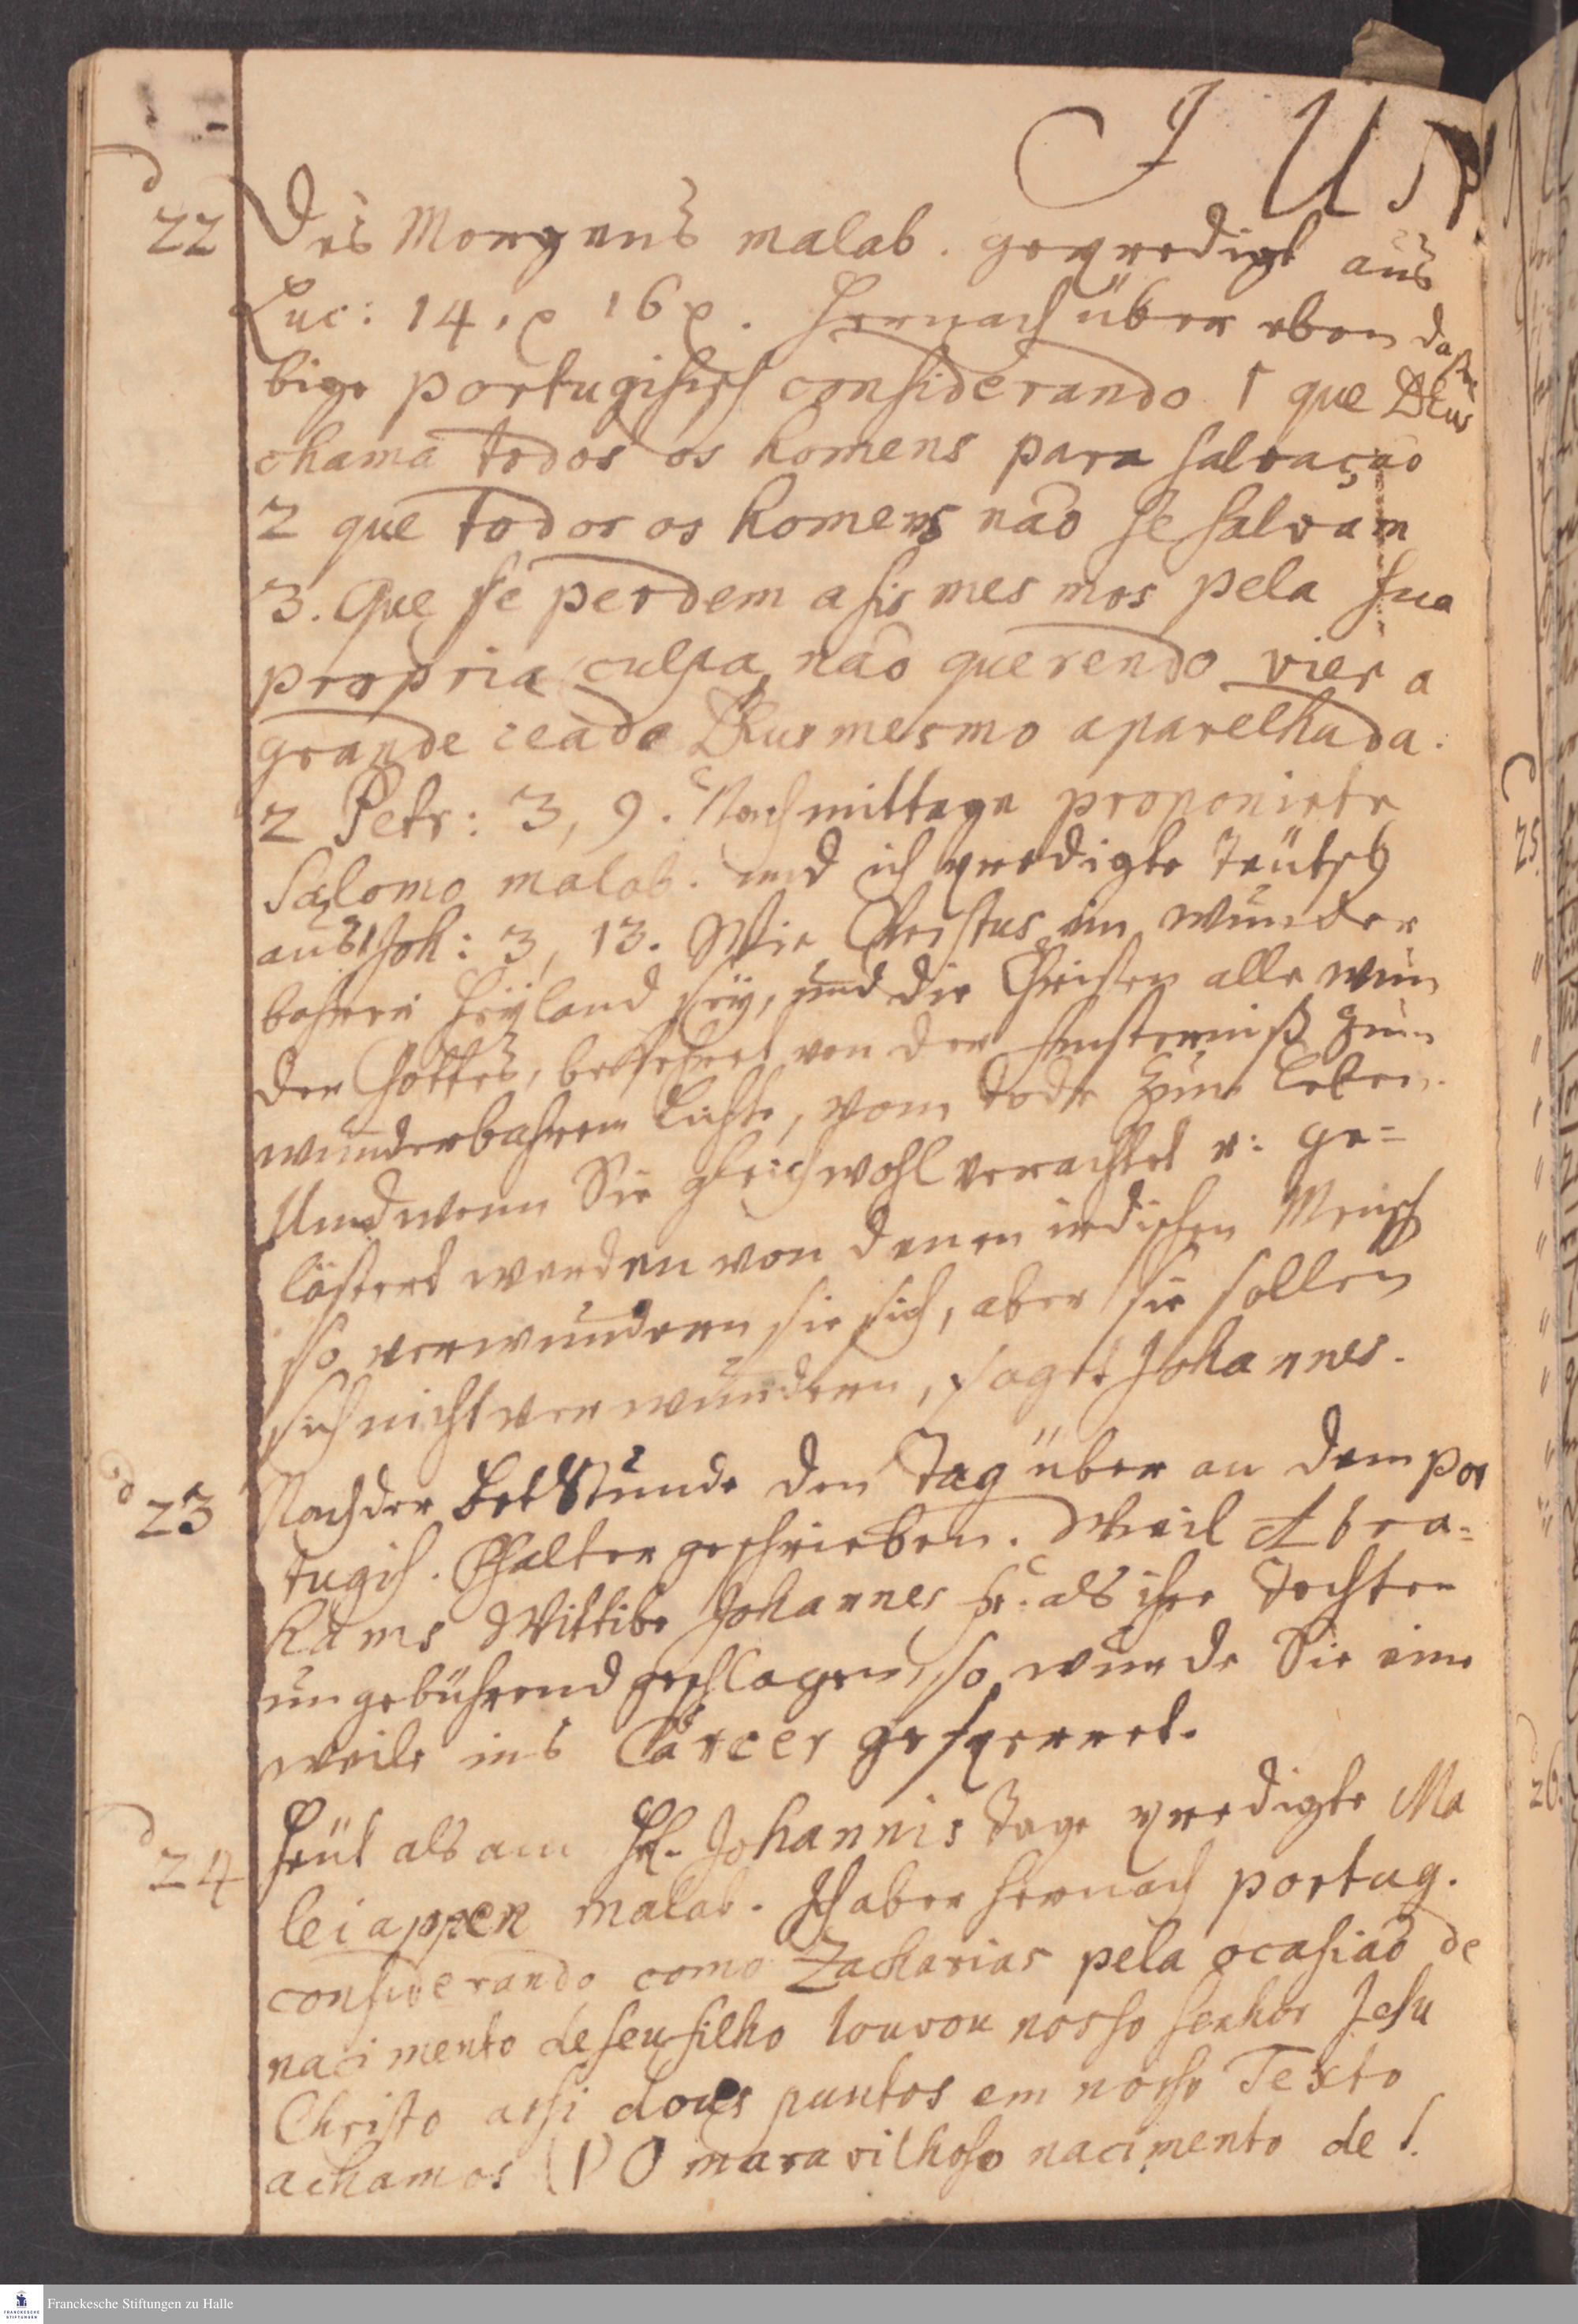 IUN
d 22 Des Morgens malab. gepredigt aus
Luc: 14, 16. Hernach über eben dassel
bige portugisisch considerando 1 que DEus
chama todos os homens para salvaçaõ
2 que todos os homens naõ se salvam
3. Que se perdem a sis mesmos pela sua
propria culpa, naõ querendo vier a
grande cea de DEus mesmo aparelhada.
2 Petr: 3, 9. Nachmittage proponirte
Salomo malab. und ich predigte Teütsch
aus 1 Joh: 3, 13. Wie Christus ein wunder
bahrer Heyland sey, und die Christen alle wun
der Gottes, bekehret von der Finsterniß zum
wunderbahrem Lichte, vom Tode zum Leben.
Und wenn Sie gleichwohl verachtet u: ge=
lästert werden von denen irdischen Mensch
so verwundern sie sich, aber sie sollen
sich nicht verwundern, saget Johannes.
d 23 Nach der BetStunde den Tag über an dem por
tugis. Psalter geschrieben. Weil Abra=
hams Wittibe Johannes Fr. als ihre Tochter
ungebührend geschlagen, so wurde Sie eine
weile ins Carcer gesperret.
d 24 Heüt als am Hl. Johannis Tage predigte Ma
leiappen malab. Ich aber hernach portug.
considerando como Zacharias pela ocasiaõ de
nacimento de seu filho louvou nosso senhor Jesu
Christo assi dous puntos em nosso Texto
achamos (1) O maravilhoso nacimento de S.
25
26.
Franckesche Stiftungen zu Halle